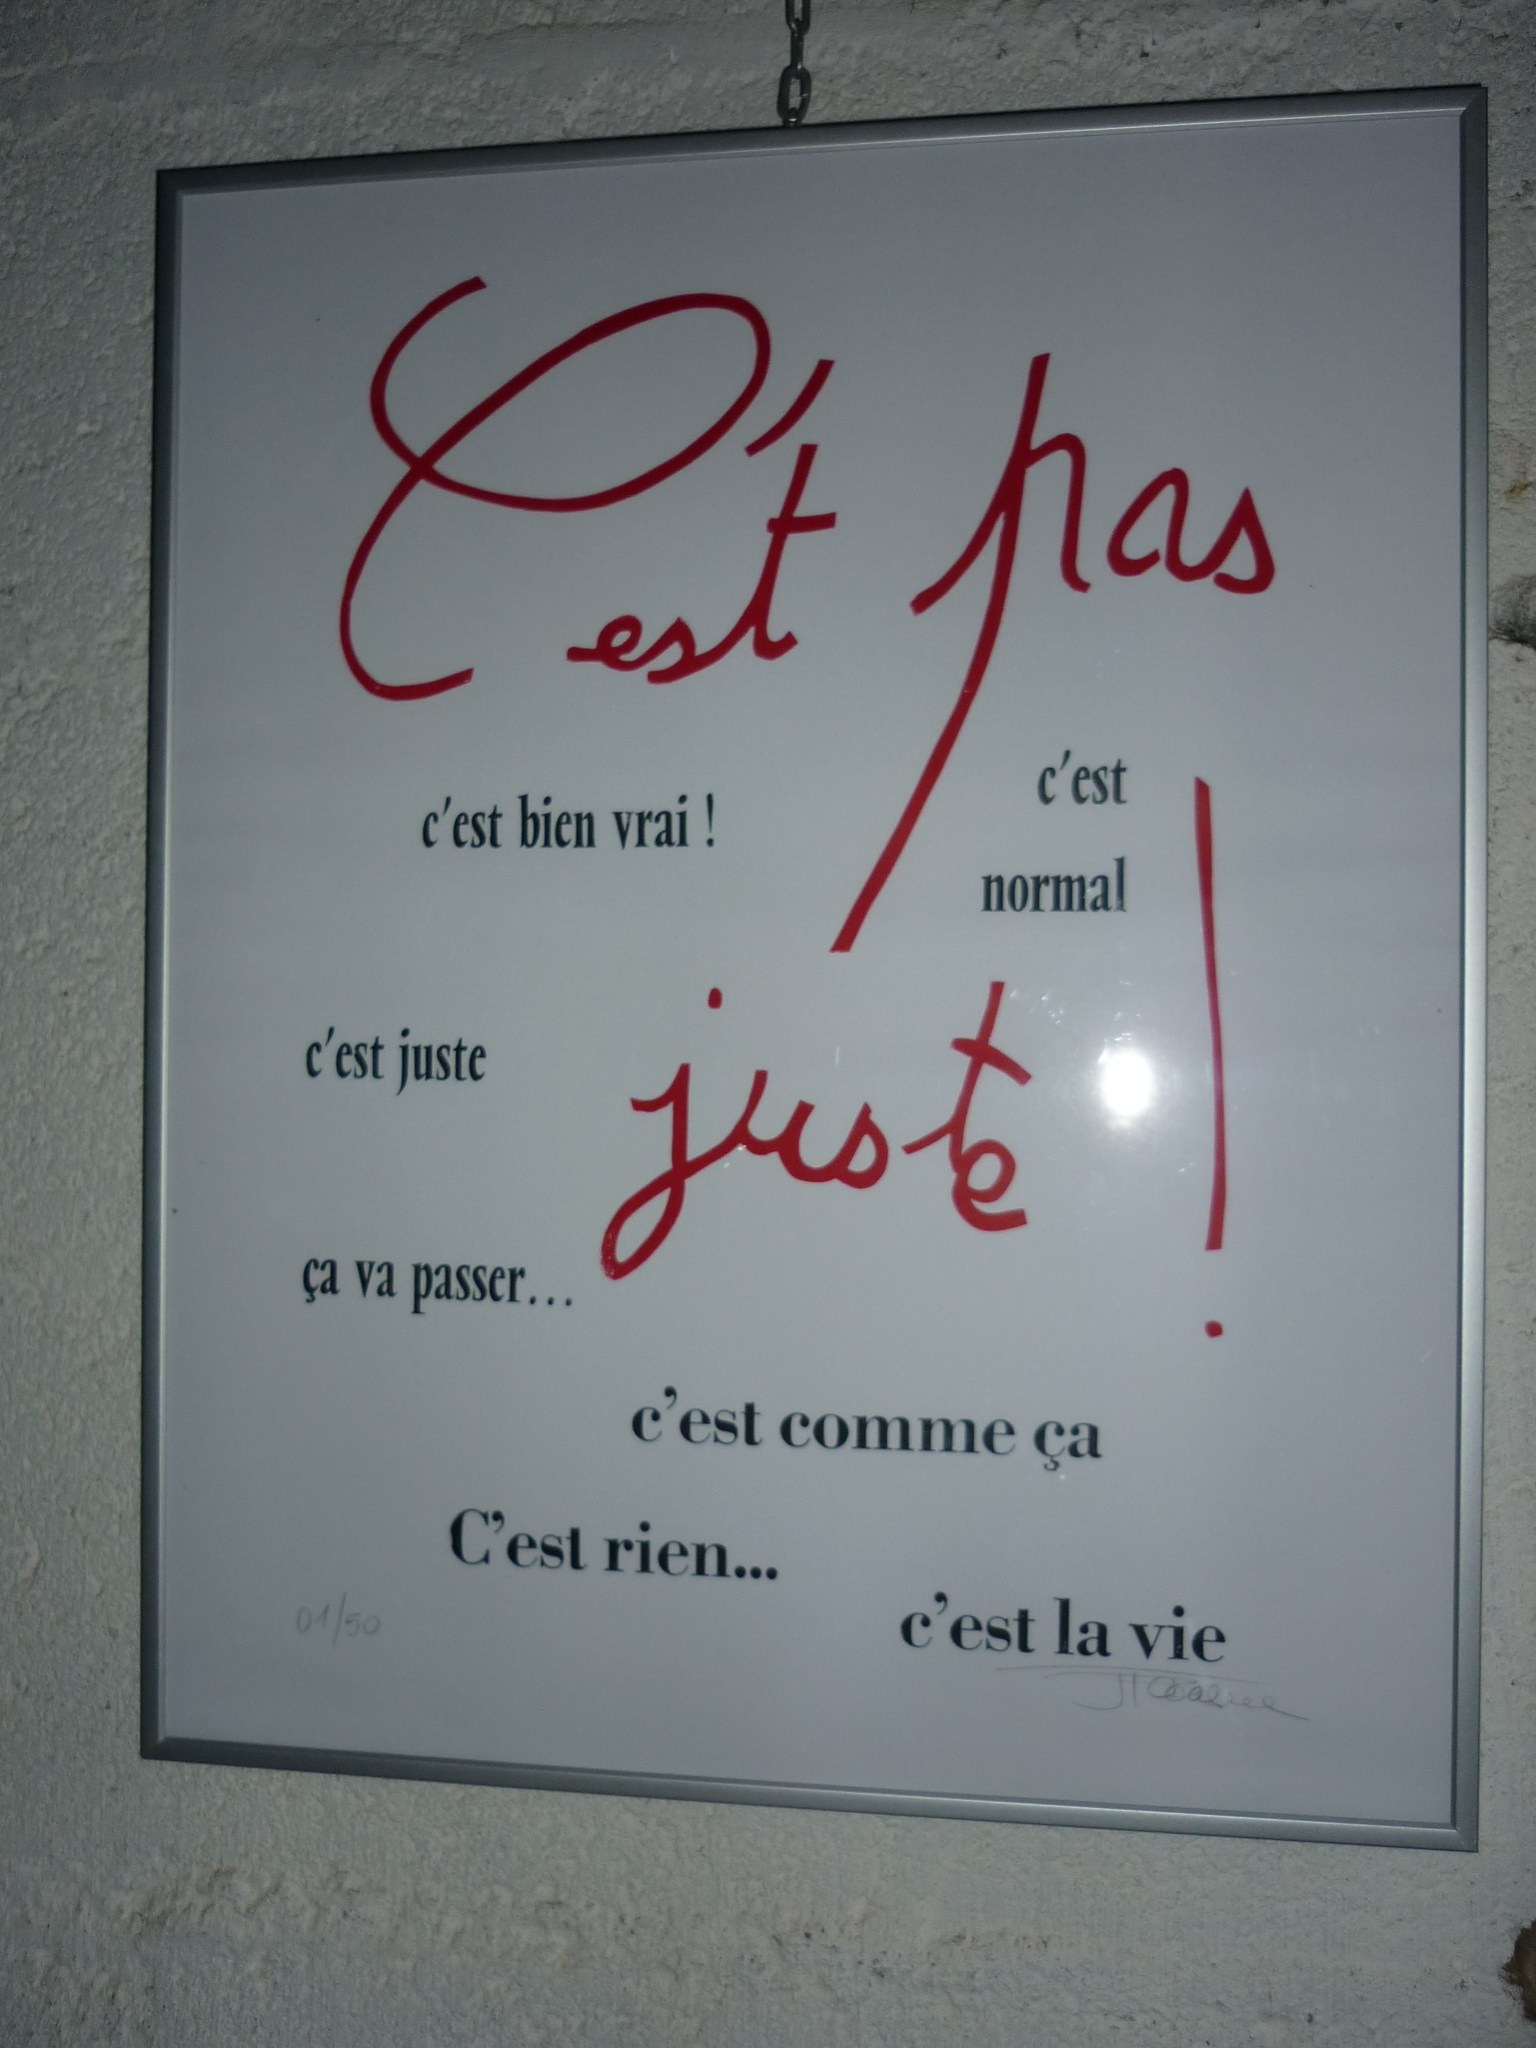 C'est pas
c'est bien vrai !
c'est
normal
c'est juste
juste !
ça va passer...
c'est comme ça
C'est rien...
c'est la vie
01/50